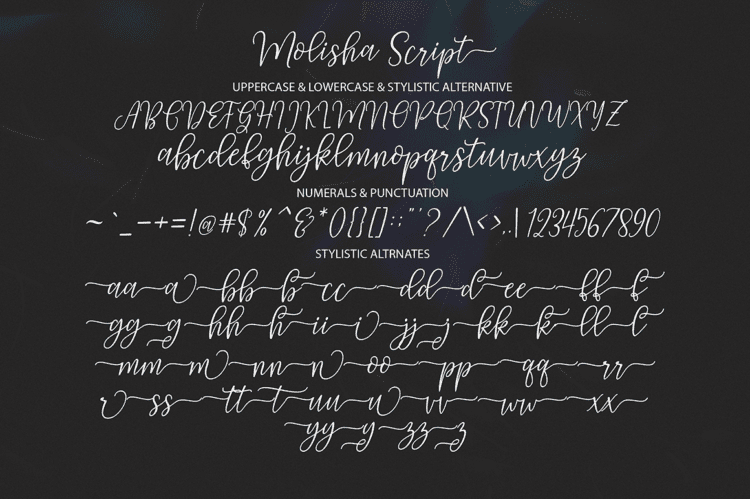 Molisha Script
UPPERCASE & LOWERCASE & STYLISTIC ALTERNATIVE
ABCDEFGHIJKLMNOPQRSTUVWXYZ
abcdefghijklmnopqrstuvwxyz
NUMERALS & PUNCTUATION
~`_-+=!@#$%^&*(){}[]:;"'?/\<>,.|1234567890
STYLISTIC ALTRNATES
aa a bb b cc dd d ee ff f
gg g hh h ii i jj j kk k ll l
mm m nn n oo pp qq rr
r ss tt t uu u vv ww xx
yy y zz z